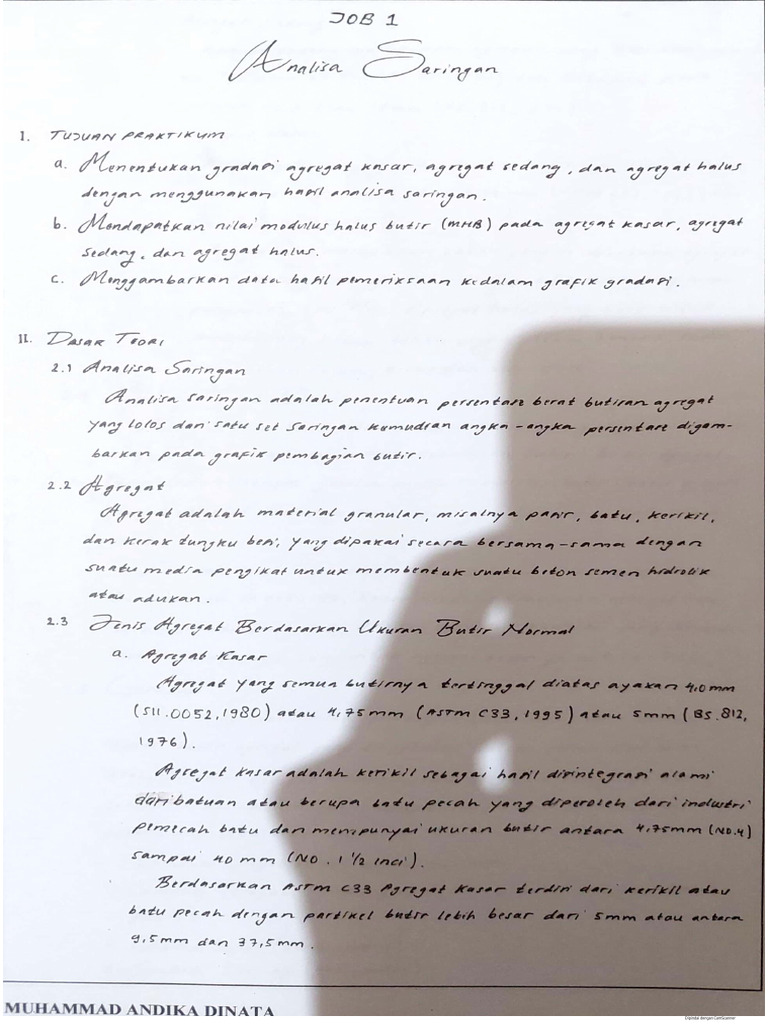 JOB 1
Analisa Saringan
I. TUJUAN PRAKTIKUM
a. Menentukan gradasi agregat kasar, agregat sedang, dan agregat halus
dengan menggunakan hasil analisa saringan.
b. Mendapatkan nilai modulus halus butir (MHB) pada agregat kasar, agregat
sedang, dan agregat halus.
c. Menggambarkan data hasil pemeriksaan kedalam grafik gradasi.
II. Dasar Teori
2.1 Analisa Saringan
Analisa saringan adalah penentuan persentase berat butiran agregat
yang lolos dari satu set saringan kemudian angka-angka persentase digam-
barkan pada grafik pembagian butir.
2.2 Agregat
Agregat adalah material granular, misalnya pasir, batu, kerikil,
dan kerak tungku besi, yang dipakai secara bersama-sama dengan
suatu media pengikat untuk membentuk suatu beton semen hidrolik
atau adukan.
2.3 Jenis Agregat Berdasarkan Ukuran Butir Normal
a. Agregat Kasar
Agregat yang semua butirnya tertinggal diatas ayakan 4,0 mm
(SII.0052,1980) atau 4,75 mm (ASTM C33, 1995) atau 5mm (BS.812,
1976).
Agregat kasar adalah kerikil sebagai hasil disintegrasi alami
dari batuan atau berupa batu pecah yang diperoleh dari industri
pemecah batu dan mempunyai ukuran butir antara 4,75mm (NO.4)
sampai 40 mm (NO. 1 1/2 inci).
Berdasarkan ASTM C33 Agregat kasar terdiri dari kerikil atau
batu pecah dengan partikel butir lebih besar dari 5mm atau antara
9,5mm dan 37,5mm.
MUHAMMAD ANDIKA DINATA
Dipindai dengan CamScanner